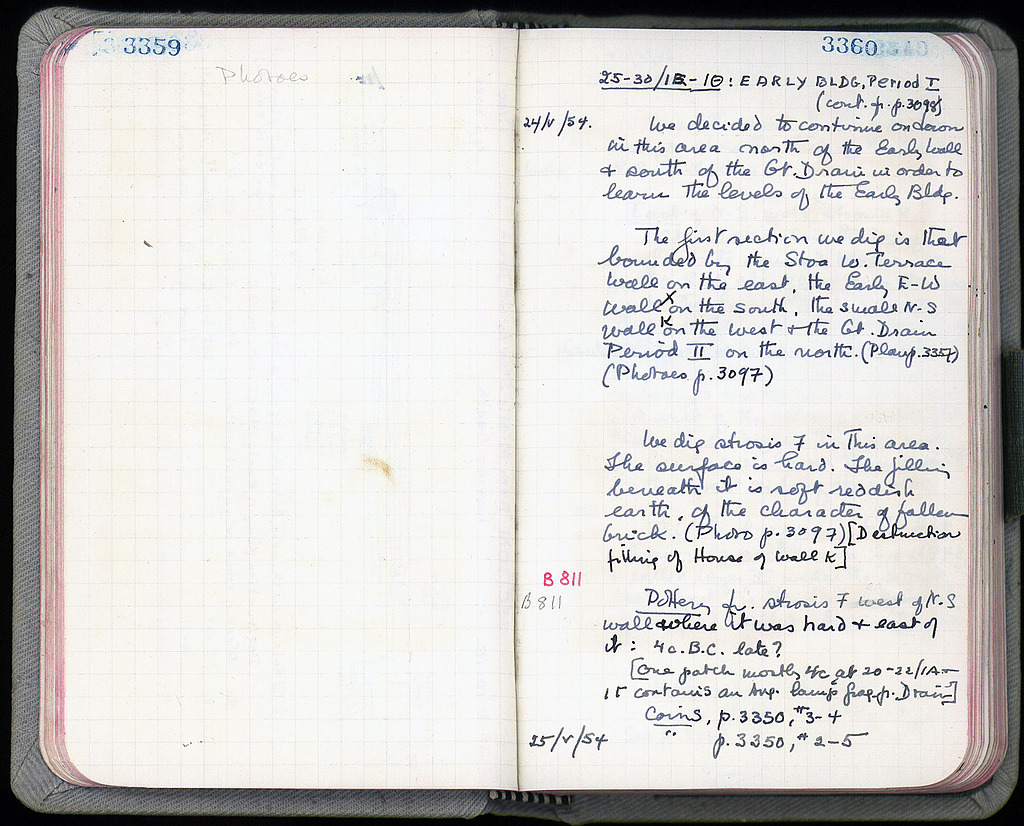 3359
Photoes
3360
25-30/ΙΕ-ΙΘ: EARLY BLDG, Period I
(cont. fr. p. 3098)
24/V/54.
We decided to continue on down
in this area north of the Early Wall
& south of the Gt. Drain in order to
learn the levels of the Early Bldg.
The first section we dig is that
bounded by the Stoa W. Terrace
wall on the east, the Early E-W
wall X on the south, the small N-S
wall K on the west & the Gt. Drain
Period II on the north. (Plan p. 3357)
(Photoes p. 3097)
We dig strosis 7 in this area.
The surface is hard. The filling
beneath it is soft reddish
earth, of the character of fallen
brick. (Photo p. 3097) [Destruction
filling of House of wall K]
B 811
B 811
Pottery fr. strosis 7 west of N-S
wall where it was hard & east of
it: 4 c. B.C. late?
[One patch mostly 4c at 20-22/ΙΑ-
ΙΓ contains an Aug. lamp frag. fr. Drain]
Coins, p. 3350, #3-4
25/V/54
" p. 3350, #2-5